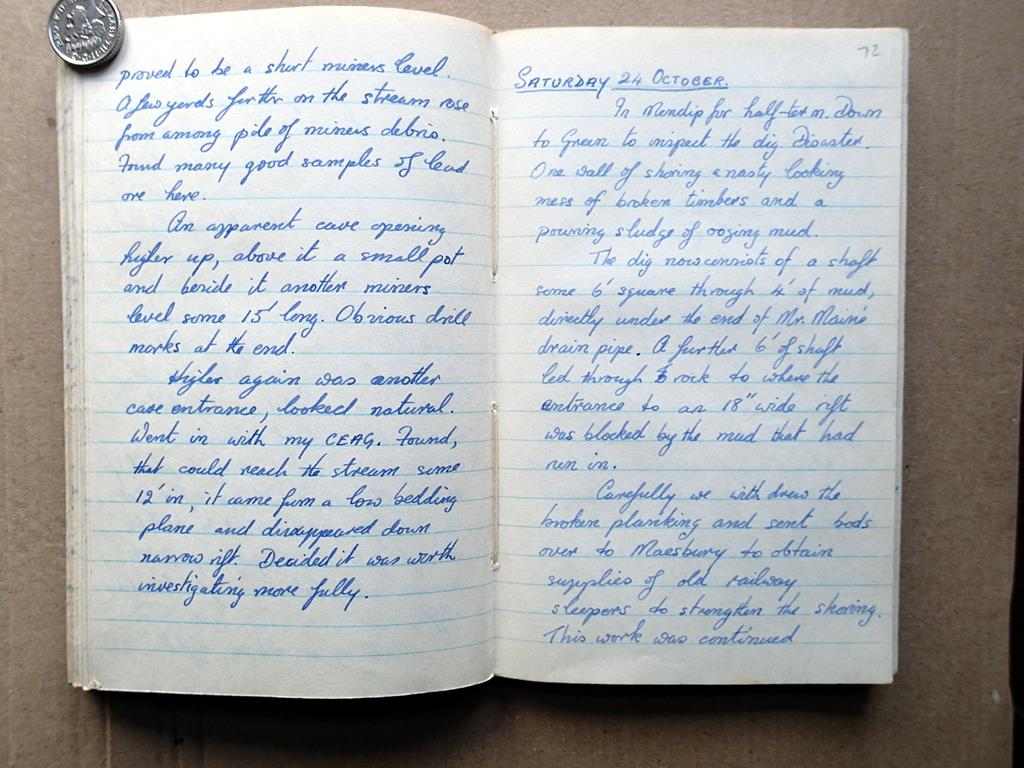 proved to be a short miners level.
A few yards further on the stream rose
from among pile of miners debris.
Found many good samples of lead
ore here.
An apparent cave opening
higher up, above it a small pot
and beside it another miners
level some 15' long. Obvious drill
marks at the end.
Higher again was another
cave entrance, looked natural.
Went in with my CEAG. Found,
that could reach the stream some
12' in, it came from a low bedding
plane and disappeared down
narrow rift. Decided it was worth
investigating more fully.
72
SATURDAY 24 OCTOBER.
In Mendip for half-term. Down
to Green to inspect the dig Disaster.
One wall of shoring a nasty looking
mess of broken timbers and a
pouring sludge of oozing mud.
The dig now consists of a shaft
some 6' square through 4' of mud,
directly under the end of Mr. Main's
drain pipe. A further 6' of shaft
led through rock to where the
entrance to an 18" wide rift
was blocked by the mud that had
run in.
Carefully we with drew the
broken planking and sent bods
over to Maesbury to obtain
supplies of old railway
sleepers to strengthen the shoring.
This work was continued